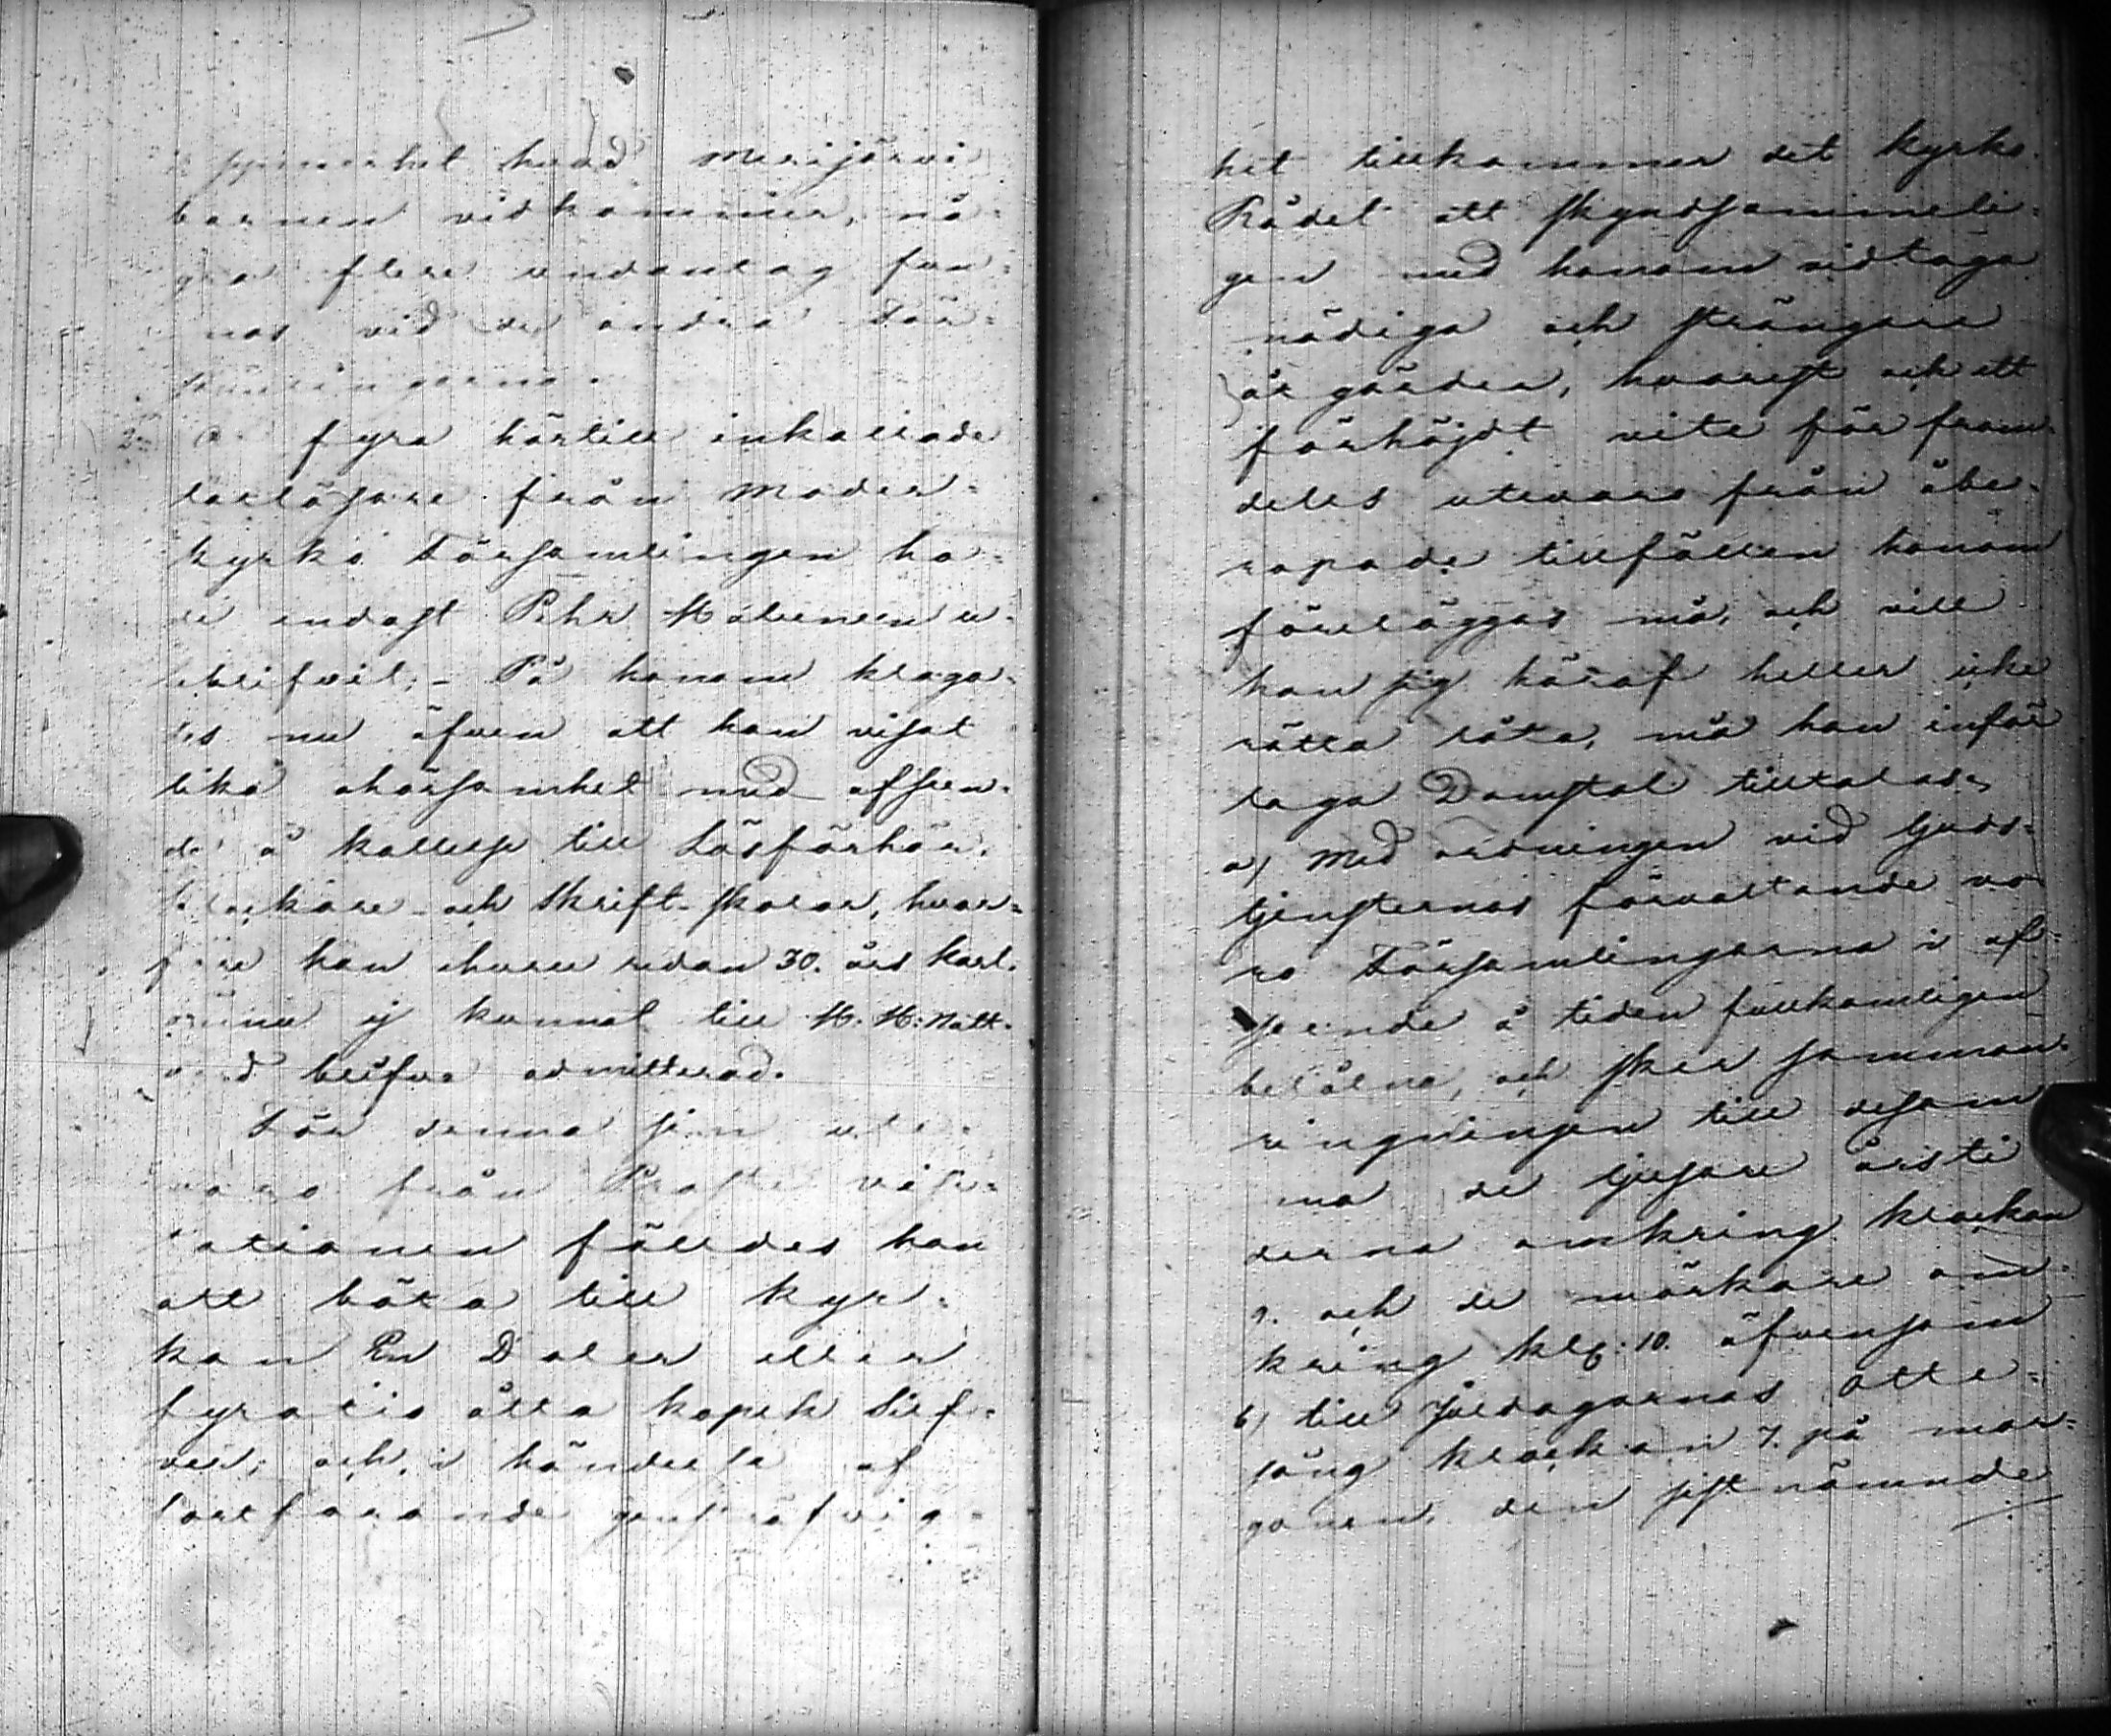 synnerhet hvad Merijärvi
barnen vidkommer, nå-
gra flere undantag fun-
nos vid de andra För-
samlingarna.
2:o Af fyra härtill inkallade
lättläsare från Moder-
kyrko Församlingen ha-
de endast Pehr u-
teblifvit; – På honom klaga-
des nu äfven att han visat
lika ohörsamhet med afseen-
de å kallelse till Läsförhör,
klockare- och Skrift-skolor, hvar-
före han ehuru redan 30. års karl.
ännu ej kunnat till H. H: Natt-
vard blifva admitterad.
För denna sin ute-
varo från Proste visi-
tationen fälldes han
att böta till kyr-
kan En Daler eller
fyratio åtta kopek Silf-
ver; och i händelse af
fortfarande gensträfvig-
het tillkommer det kyrko
Rådet att skyndsammeli-
gen med honom vidtaga
nödiga och strängare
åtgärder, hvarest och ett
förhöjdt vite för fram-
deles utevaro från åbe-
ropade tillfällen honom
föreläggas må, och vill
han sig häraf heller icke
rätta låta, må han inför
laga Domstol tilltalas.
a) Med ordningen vid Guds-
tjensternas förvaltande vo-
ro Församlingarna i af-
seende å tiden fullkomligen
belåtna, och sker samman-
ringningen till desam-
ma de ljusare årsti
derna omkring klockan
9. och de mörkare om-
kring kl: 10. äfvensom
b) till Juldagarnas Otte-
sång klockan 7. på mor-
gonen, den sistnämnde